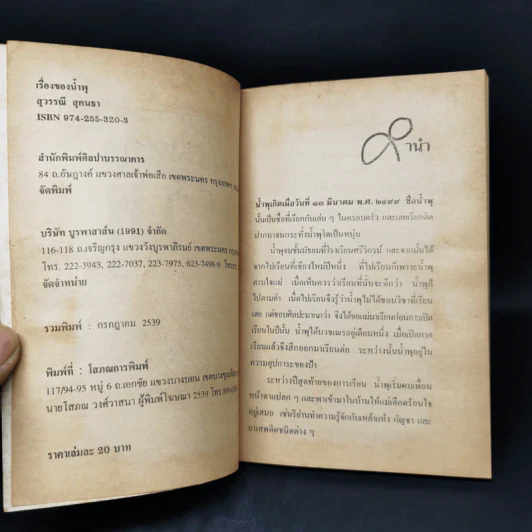 เรื่องของน้ำพุ
สุวรรณี สุคนธา
ISBN 974-255-320-3
สำนักพิมพ์ศิลปาบรรณาคาร
84 ถ.อัษฎางค์ แขวงศาลเจ้าพ่อเสือ เขตพระนคร กรุงเทพฯ
จัดพิมพ์
บริษัท บูรพาสาส์น (1991) จำกัด
116-118 ถ.เจริญกรุง แขวงวังบูรพาภิรมย์ เขตพระนคร
โทร. 222-3943, 222-7037, 223-7975, 623-7498-9
จัดจำหน่าย
รวมพิมพ์ : กรกฎาคม 2539
พิมพ์ที่ : โสภณการพิมพ์
117/94-95 หมู่ 6 ถ.เอกชัย แขวงบางบอน เขตบางขุนเทียน
นายโสภณ วงศ์วาสนา ผู้พิมพ์โฆษณา 2539 โทร.
ราคาเล่มละ 20 บาท
คำนำ
น้ำพุเกิดเมื่อวันที่ ๑๓ มีนาคม พ.ศ. ๒๔๙๙ ชื่อน้ำพุ
นั้นเป็นชื่อที่เรียกกันเล่น ๆ ในครอบครัว และเลยเรียกติด
ปากมาจนกระทั่งน้ำพุโตเป็นหนุ่ม
น้ำพุจบชั้นมัธยมที่โรงเรียนศรีวิการม์ และจากนั้นได้
จากไปเรียนที่เชียงใหม่ปีหนึ่ง ที่ไปเรียนที่เพราะน้ำพุ
ตามใจแม่ เมื่อเห็นควรว่าเรียนที่นั่นจะดีกว่า น้ำพุก็
ไปตามคำ เมื่อไปเรียนจึงรู้ว่าน้ำพุไม่ได้ชอบวิชาที่เรียน
เลย แต่ชอบศิลปะมากว่า จึงได้ขอแม่มาเรียนก่อนการเปิด
เรียนในปีนั้น น้ำพุได้บวชเณรอยู่เดือนหนึ่ง เมื่อเปิดภาค
เรียนแล้วจึงสึกออกมาเรียนต่อ ระหว่างนั้นน้ำพุอยู่ใน
ความอุปการะของป้า
ระหว่างปีสุดท้ายของการเรียน น้ำพุเริ่มคบเพื่อน
หน้าตาแปลก ๆ และพาเข้ามาในบ้านให้แม่เดือดร้อนใจ
อยู่เสมอ เช่นริอ่านทำความรู้จักกับเหล้าแห้ง กัญชา และ
ยาเสพติดชนิดต่าง ๆ